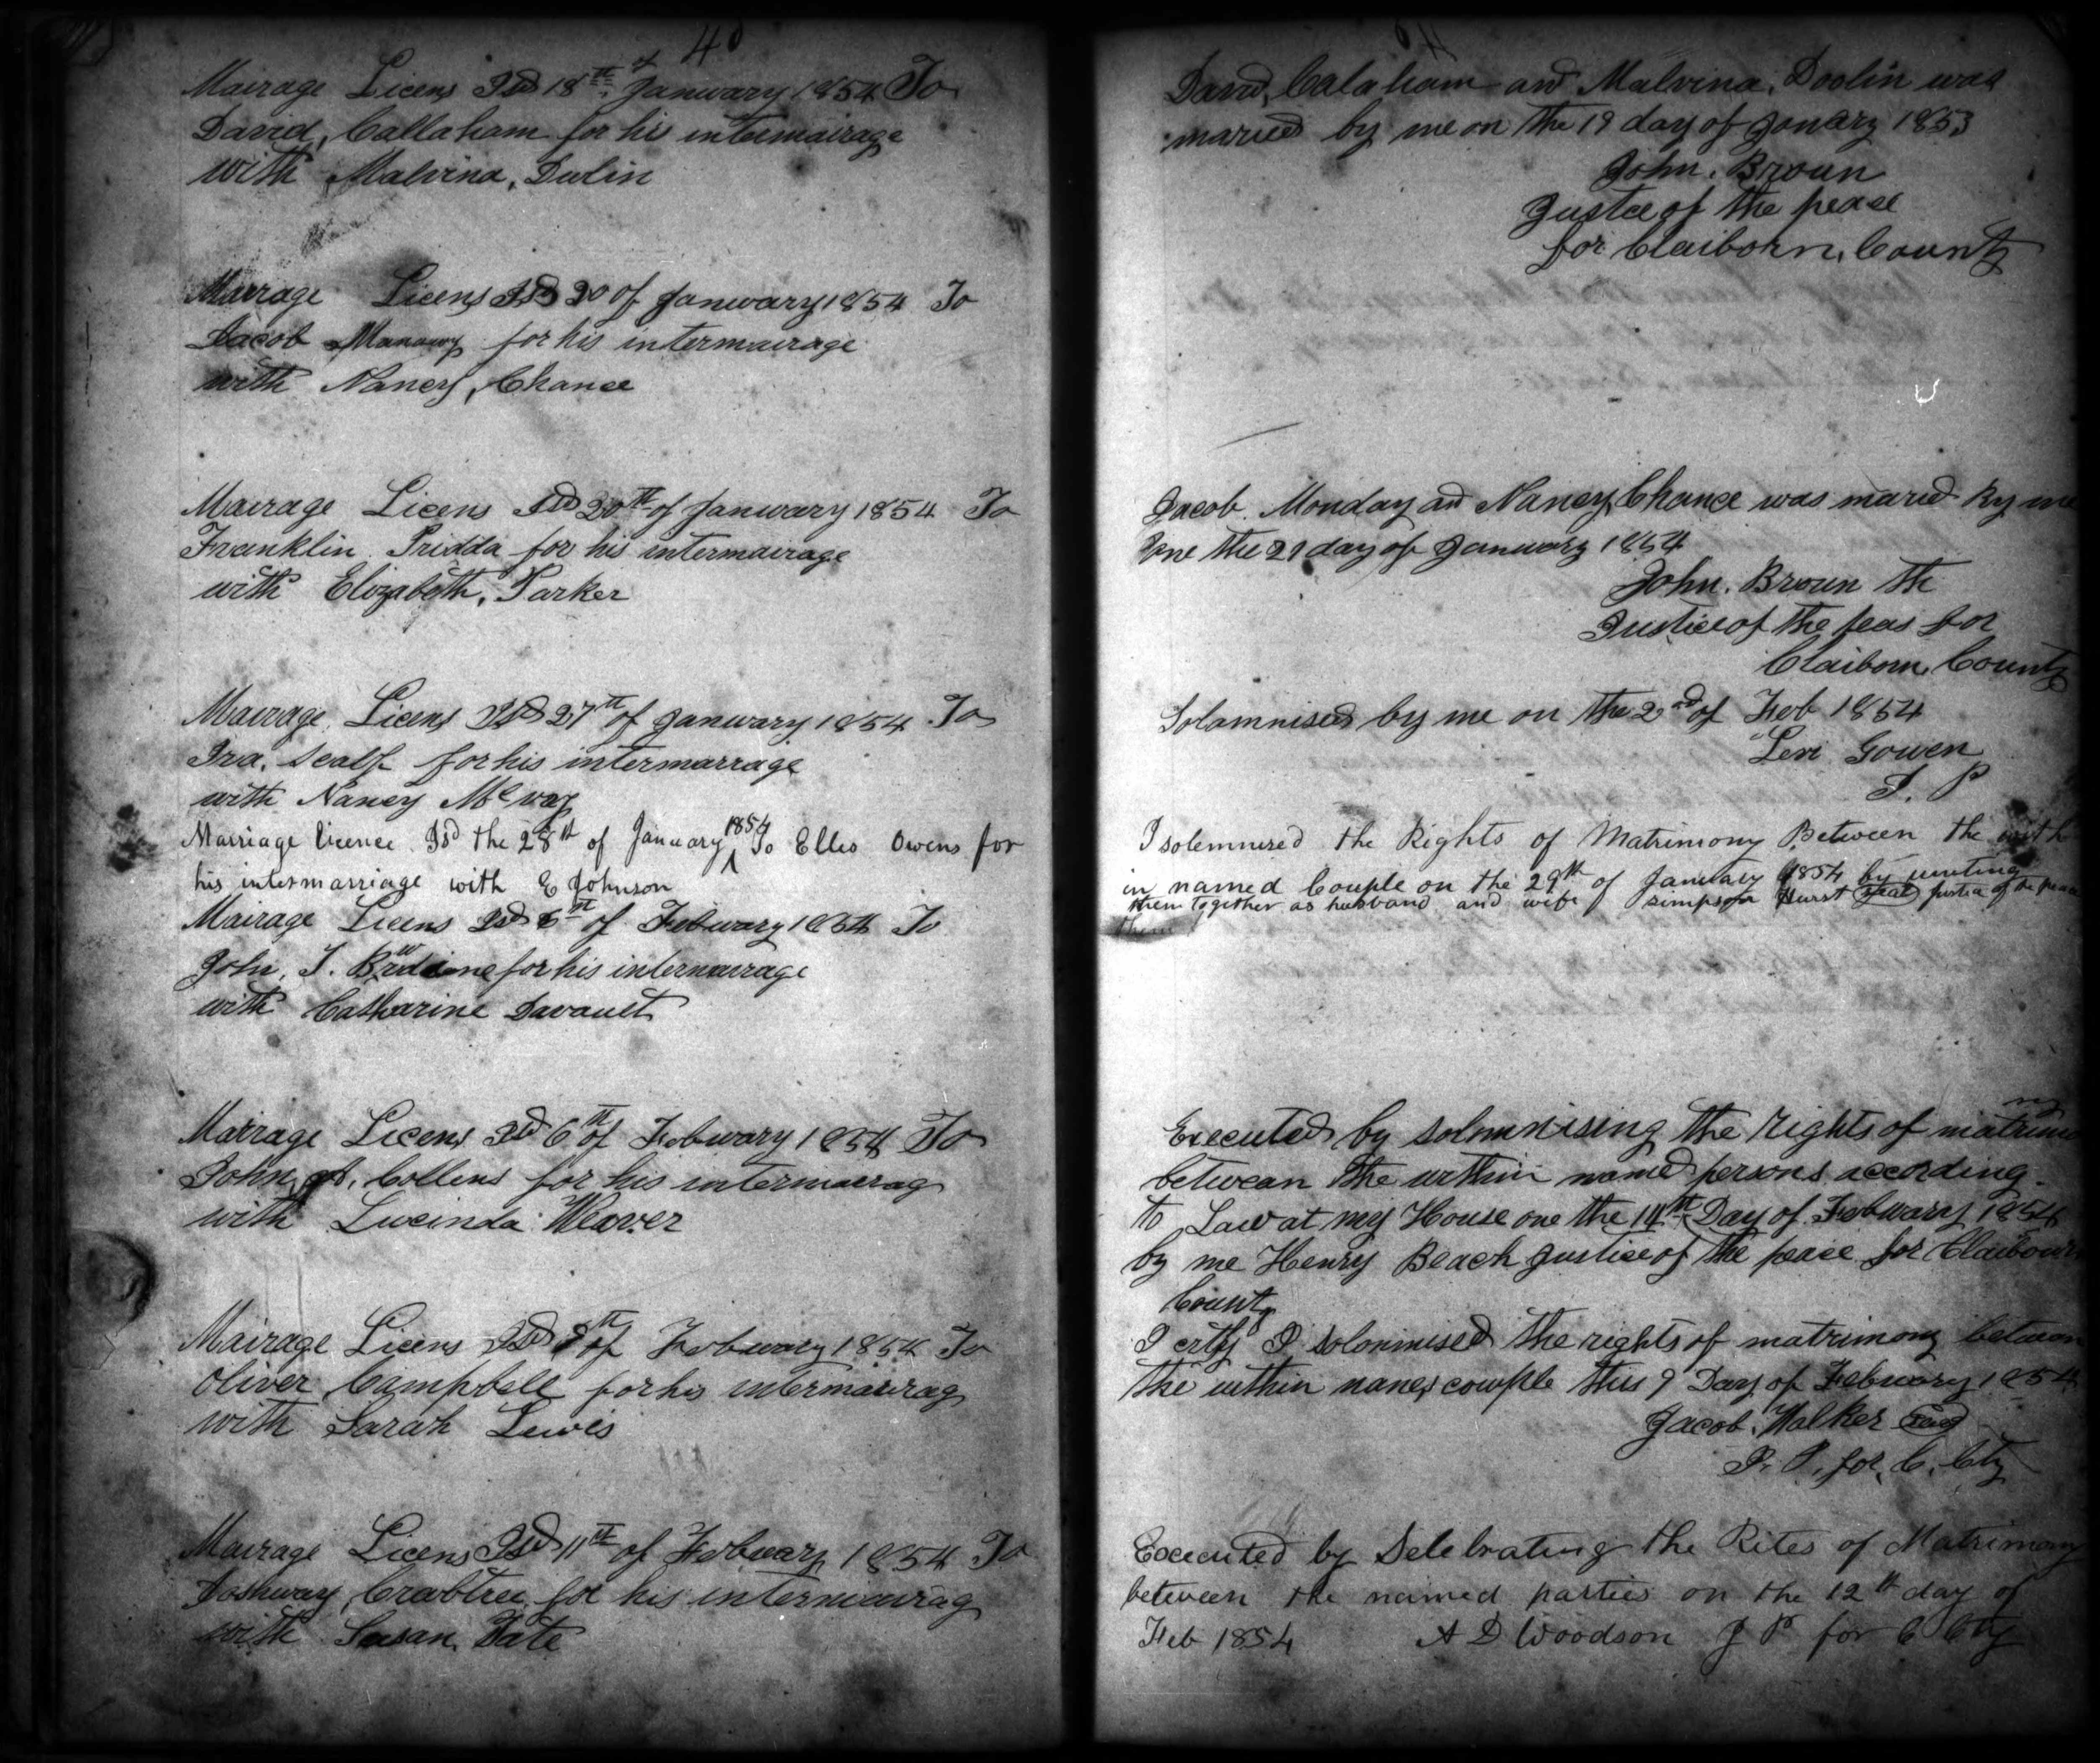 4
Mairage Licens Isd 18th of January 1854 To
David, Callaham for his intermairage
with Malvina, Dulin
Marrage Licens Isd 20 of January 1854 To
Jacob for his intermairage
with Nancy, Chance
Mairage Licens Isd 20th of January 1854 To
Franklin for his intermairage
with Elizabeth, Parker
Mairage Licens Isd 27th of January 1854 To
Ira, Scalf for his intermarrage
with Nancy McVay
Marriage licence Isd the 28th of January 1854 To Elles Owens for
his intermarriage with E Johnson
Mairage Licens Isd of Febuary 1854 To
John, T. for his intermairage
with Catharine Davault
Marrage Licens Isd 6th of Febuary 1854 To
John Collens for his intermairag
with Lucinda Weaver
Mairage Licens Isd of Febuary 1854 To
Oliver Campbell for his intermairag
with Sarah Lewis
Mairage Licens Isd 11th of Febuary 1854 To
Crabtree for his intermairag
with Susan, Tate
David, Calaham and Malvina, Doolin was
maried by me on the 19 day of Jonuary 1853
John, Broun
Justice of the peace
for Claiborn, County
Jacob Monday and Nancy Chance was maried By me
one the 29 day of January 1854
John. Broun the
Justice of the peas for
Claiborn, County
Solamnised by me on the 2nd of Feb 1854
Levi Gowen
J. P
I solemnised the Rights of Matrimony Between the with
in named Couple on the 29th of January 1854 by uniting
them together as husband and wife Simpson Hurst Seal justice of the peace
Executed by solmnising the rights of matrimony
betwean the within named persons according
to Law at my House one the 14th Day of Febuary 1854
by me Henry Beach Justice of the peace for Claibourn
County
I certfy I solonmised the rights of matrimony between
the within named couple this 9 Day of February 1854
Jacob, Walker Seal
J. P, for, C, Cty
Excecuted by Selebrating the Rites of Matrimony
between the named parties on the 12th day of
Feb 1854 A D Woodson J P for C Cty